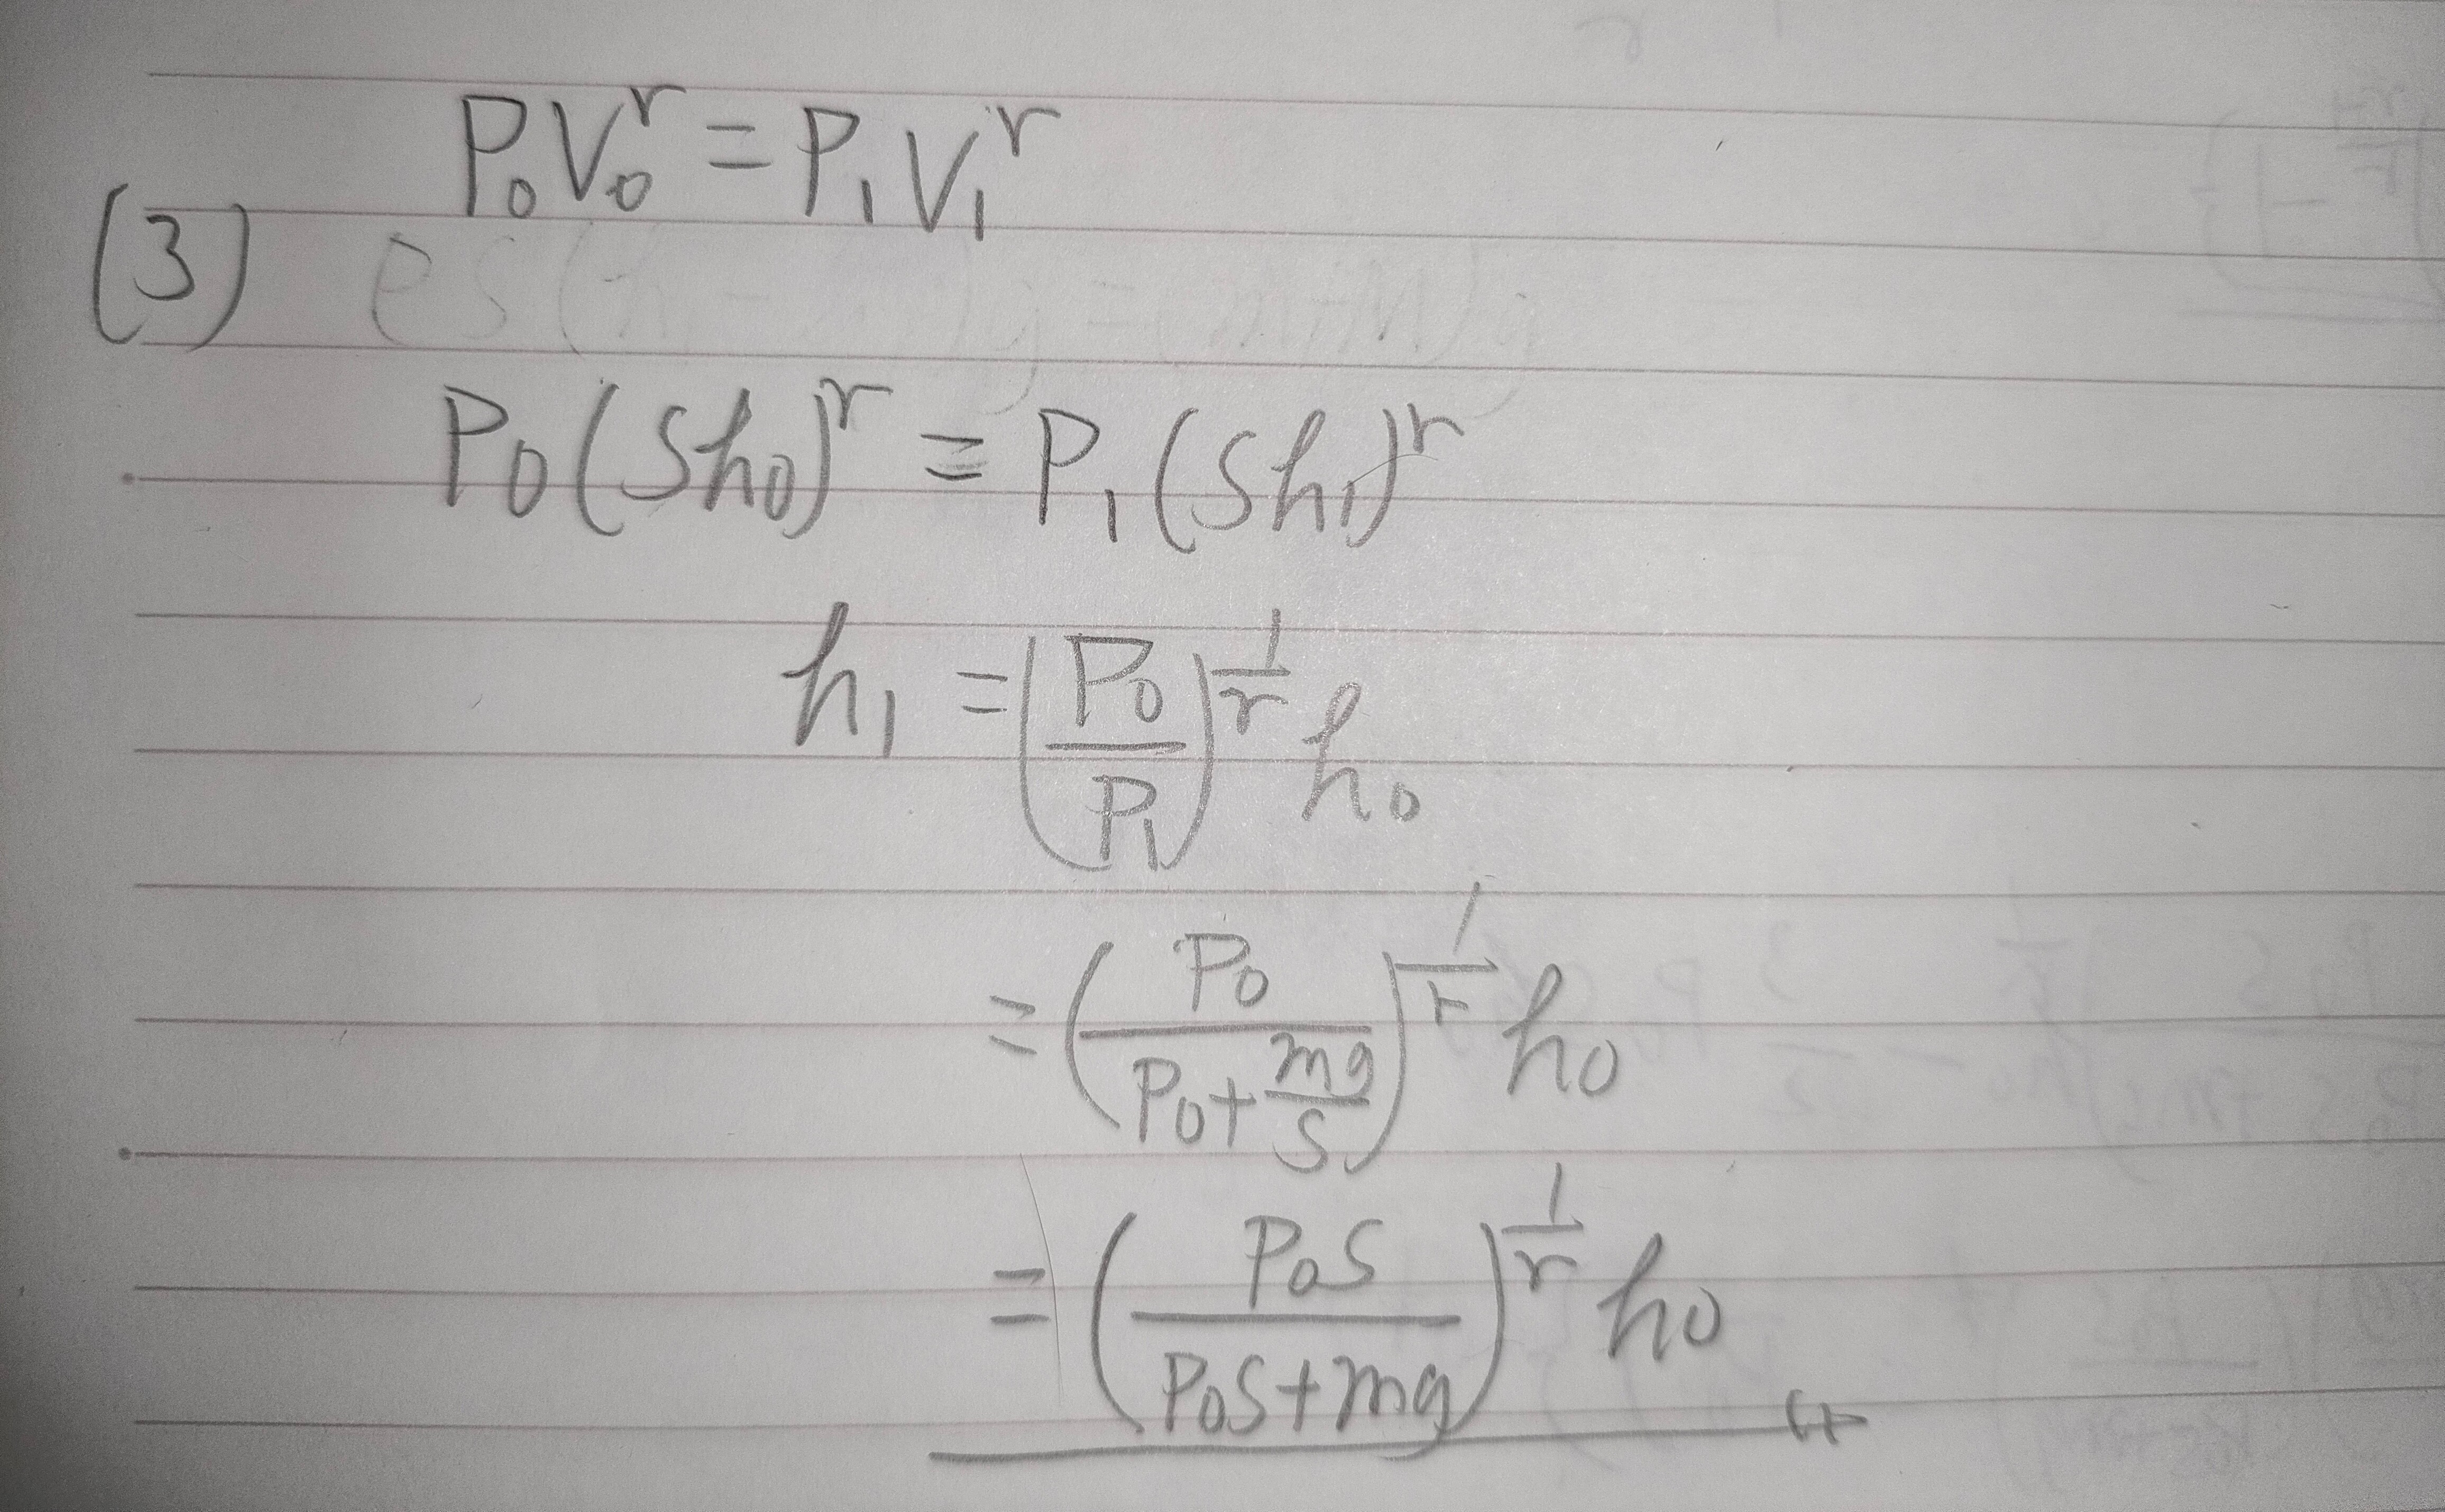 P₀V₀^r = P₁V₁^r
(3)
P₀(Sh₀)^r = P₁(Sh₁)^r
h₁ = (P₀/P₁)^(1/r) h₀
= (P₀/(P₀+mg/S))^(1/r) h₀
= (P₀S/(P₀S+mg))^(1/r) h₀